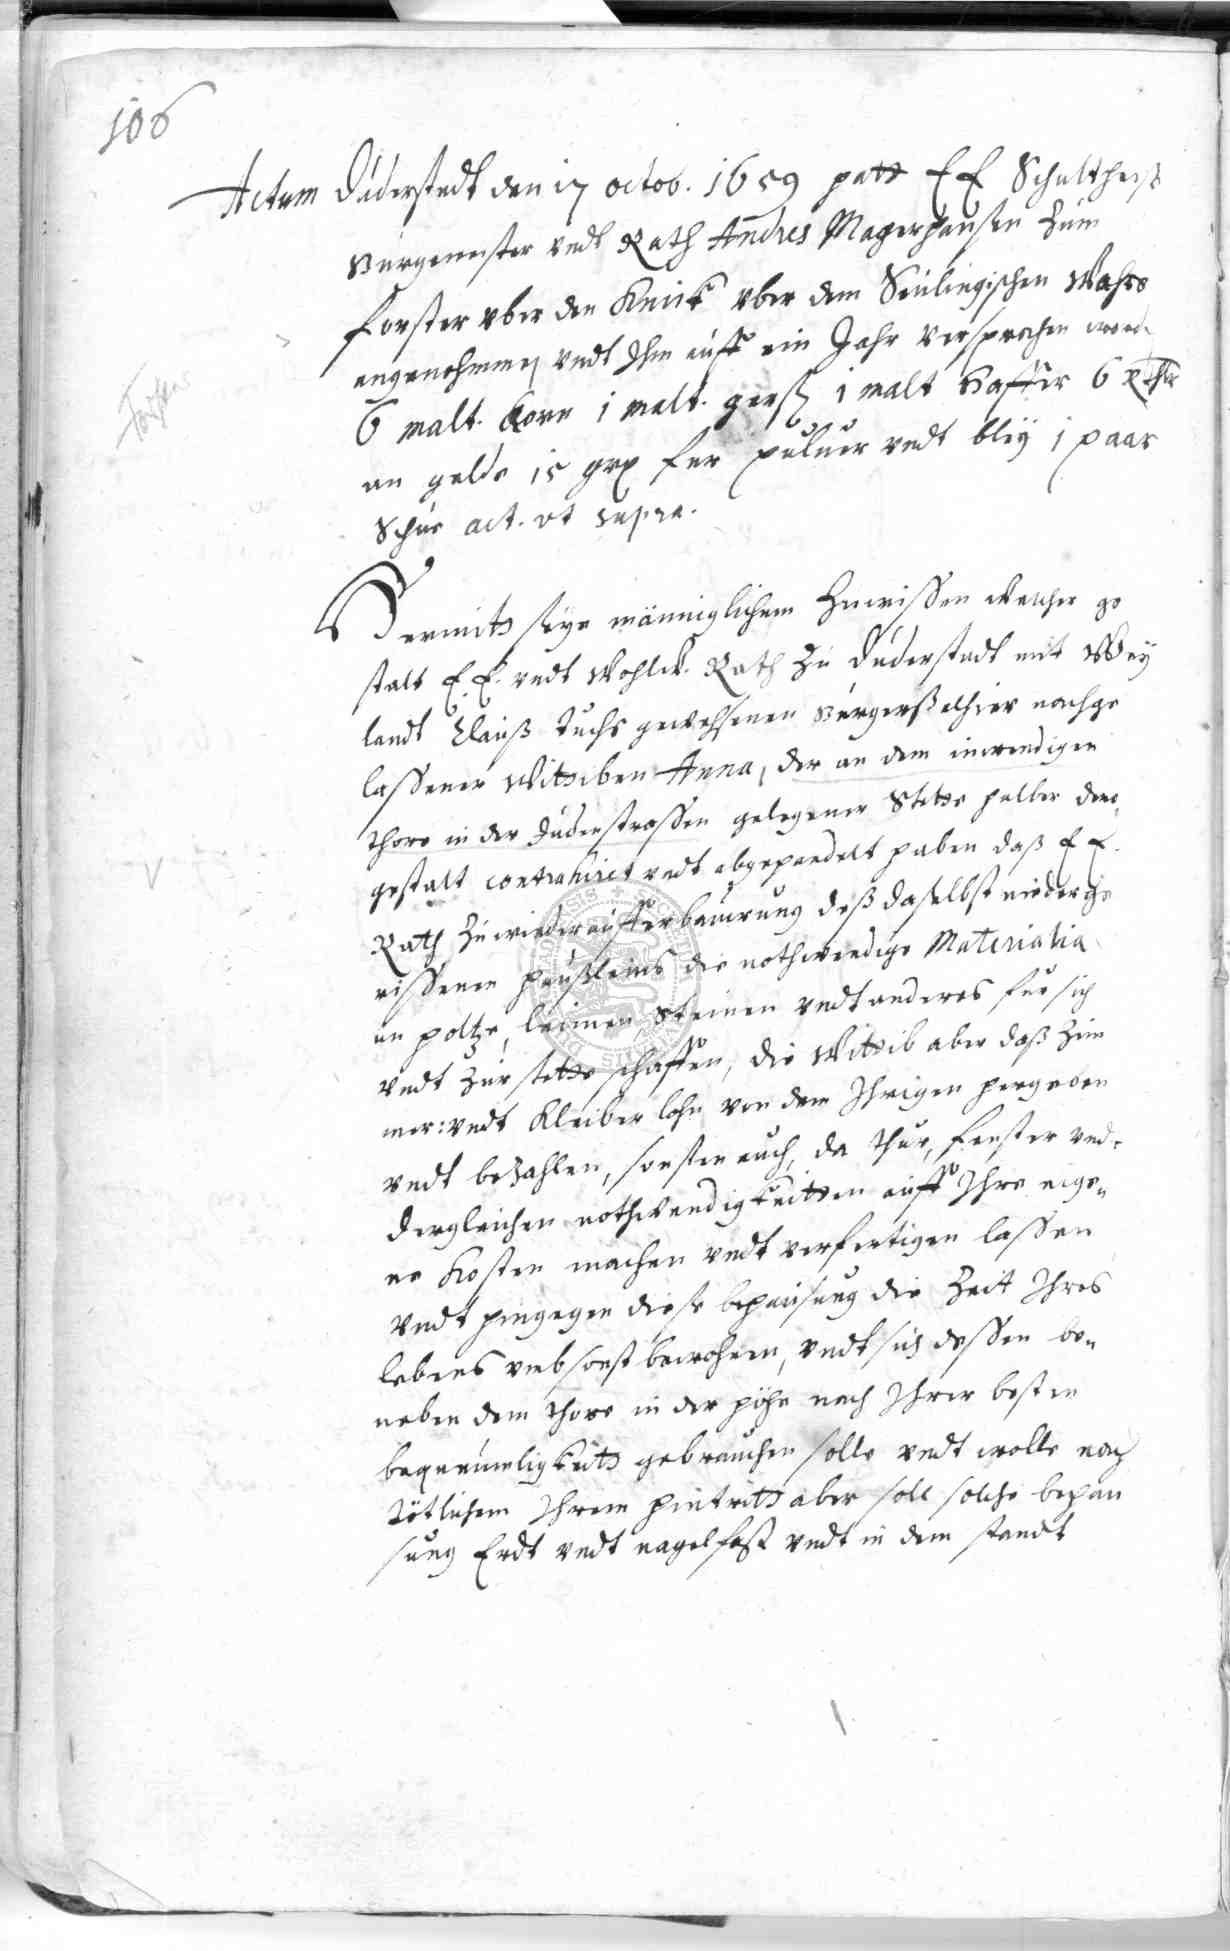 106
Actum Duderstadt den 17 octob. 1659 hatt E E Schultheiß
Bürgemeister vndt Rath Andres Magerhausen zum
Forster vber den Knick vber dem Seulingischen Wahse
angenohmmen vndt Ihm auff ein Jahr versprochen word
Forster
6 malt. Korn 1 malt. gerst 1 malt Haffer 6 Rthlr
an gelde 15 grx fur puluer vndt bley 1 paar
Schue act. vt supra.
Hiermitt seye männiglichem zuwissen welcher ge
stalt E. E. vndt Wohlw. Rath zu Duderstadt mit Wey
landt Clauß Tuchs gewehsenen Bürgerß alhier nachge
lassener Wittiben Anna, der an dem inwendigen
thore in der Suderstrassen gelegener Stette halber dero
gestalt contrahirt vndt abgehandelt haben daß E E.
Rath zu wiederaufferbauwrung deß daselbst niederge
rissenen haußleins die nothwendige Materialia
an holtze, leimen, Steinen vndt anderes fur sich
vndt zur stette schaffen, die Wittib aber daß Zim
mer: vndt Kleiber lohn von dem Ihrigen hergeben
vndt bezahlen, sonsten auch, da thur, fenster vnd
dergleichen nothwendigkeitten auff Ihre eige,
ne Kosten machen vndt verfertigen lassen
vndt hingegen diese behausung die Zeit Ihres
lebens vmbsonst bewohnen, vndt sich dessen be,
neben dem thore in der höhe nach Ihrer besten
bequeümligkeitt gebrauchen solle vndt wolle nach
tötlichem Ihrem hintritt aber soll solche behau
sung Erdt vndt nagelfest vndt in dem standt